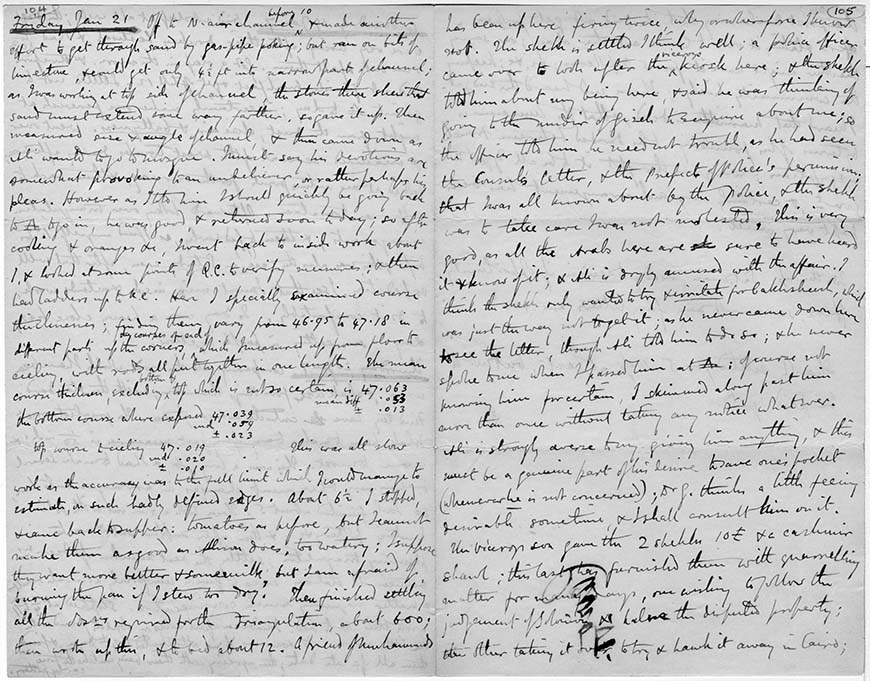 104
Friday Jan 21 Off to N. air channel before 10 & made another
effort to get through sand by gas-pipe poking; but ran on bits of
limestone, & could get only 4½ ft into narrow part of channel;
as I was working at top side of channel the stones there shew that
sand must extend some way farther, so gave it up. Then
measured size & angle of channel & then came down as
Ali wanted to go to mosque. I must say his devotions are
somewhat provoking to an unbeliever, or rather perhaps his
pleas. However as I told him I should quickly be going back
to go in, he was good, & returned soon to day; so after
cooking & oranges &c I went back to inside work about
1, & looked at some points of Q.C. to verify measures; & then
had ladders up to K.C. Here I specially examined course
thicknesses; finding them vary from 46.95 to 47.18 in
different parts by courses of each of the corners, which I measured up from floor to
ceiling with rods all put together in one length. The mean
course thickness, excluding bottom & top which is not so certain is 47.063
mean diff .053
± .013
the bottom course where exposed 47.039
md .059
± .023
top course to ceiling 47.019
md .020
± .010
This was all slow
work as the accuracy was to the full limit which I could manage to
estimate, on such badly defined edges. About 6½ I stopped,
& came back to supper: tomatoes as before, but I cannot
make them as good as does, too watery; I suppose
they want more butter & some milk, but I am afraid of
burning the pan if I stew too dry. Then finished settling
all the required for the Triangulation, about 600;
then wrote up this, & to bed about 12. A friend of Muhammed's
105
has been up here firing twice, why or wherefore I know
not. The shekh is settled I think well; a police officer
came over to look after the viceroy's kiosk here; & the shekh
told him about my being here, & said he was thinking of
going to the mudir of Gizeh to enquire about me; so
the officer told him he need not trouble, as he had seen
the Consul's letter, & the Prefect of Police's permission.
that I was all known about by the Police, & the shekh
was to take care I was not molested. This is very
good, as all the Arabs here are sure to have heard
it & know of it; & Ali is drolly amused with the affair. I
think the shekh only wanted to try & for bakhshesh, which
was just the way not to get it; as he never came down here
to see the letter, though Ali told him to do so; & he never
spoke to me when I passed him at; of course not
knowing him for certain, I skimmed along past him
more than once without taking any notice whatever.
Ali is strongly averse to my giving him anything, & this
must be a genuine part of his desire to save one's pocket
(whenever he is not concerned); Dr G. thinks a little feeing
desirable sometime, & I shall consult him on it.
The viceroy's son gave the 2 shekhs 10£ & a cashmir
shawl; this last has furnished them with quarrelling
matter for many days, one wishing to follow the
judgement of Solomon & halve the disputed property;
the other taking it to try & hawk it away in Cairo;